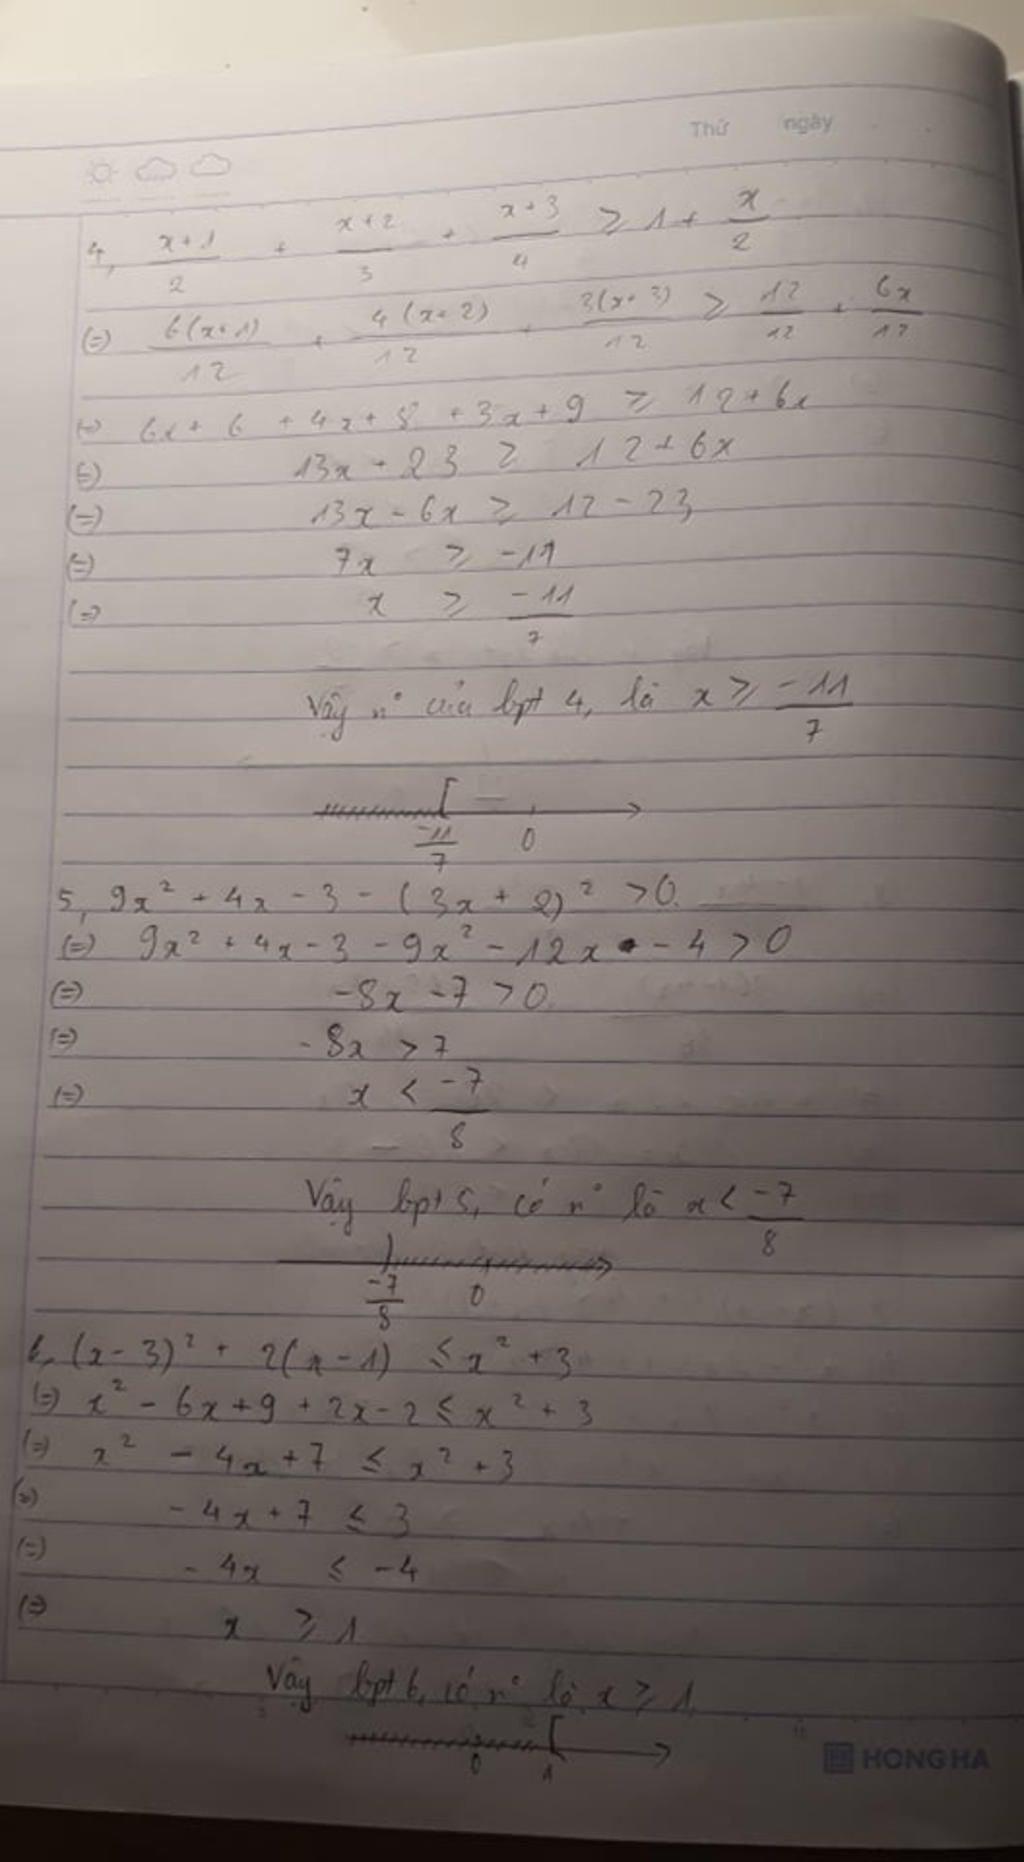 Thứ ngày
4, \frac{x+1}{2} + \frac{x+2}{3} + \frac{x+3}{4} ≥ 1 + \frac{x}{2}
(=) \frac{6(x+1)}{12} + \frac{4(x+2)}{12} + \frac{3(x+3)}{12} ≥ \frac{12}{12} + \frac{6x}{12}
(=) 6x + 6 + 4x + 8 + 3x + 9 ≥ 12 + 6x
(=) 13x + 23 ≥ 12 + 6x
(=) 13x - 6x ≥ 12 - 23
(=) 7x ≥ -11
(=) x ≥ \frac{-11}{7}
Vậy n° của bpt 4, là x ≥ \frac{-11}{7}
\frac{-11}{7} 0
5, 9x² + 4x - 3 - (3x + 2)² > 0
(=) 9x² + 4x - 3 - 9x² - 12x - 4 > 0
(=) -8x - 7 > 0
(=) -8x > 7
(=) x < \frac{-7}{8}
Vậy bpt 5, có n° là x < \frac{-7}{8}
\frac{-7}{8} 0
6, (x-3)² + 2(x-1) ≤ x² + 3
(=) x² - 6x + 9 + 2x - 2 ≤ x² + 3
(=) x² - 4x + 7 ≤ x² + 3
(=) -4x + 7 ≤ 3
(=) -4x ≤ -4
(=) x ≥ 1
Vậy bpt 6, có n° là x ≥ 1
0 1
HONG HA